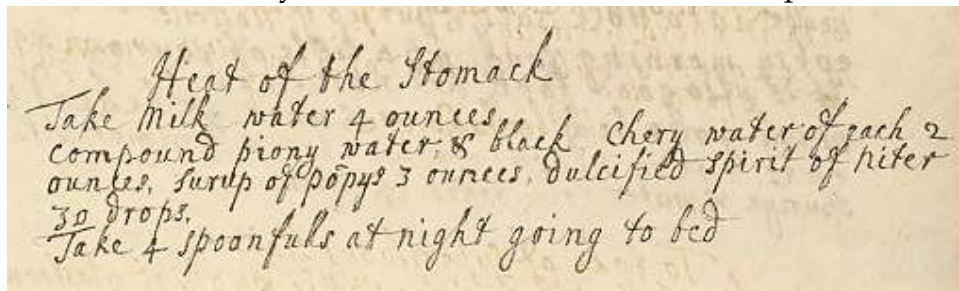 Heat of the Stomack
Take Milk water 4 ounces
compound piony water, & black Chery water of each 2
ounces, surup of pōpys 3 ounces, dulcified spirit of niter
30 drops.
Take 4 spoonfulls at night going to bed